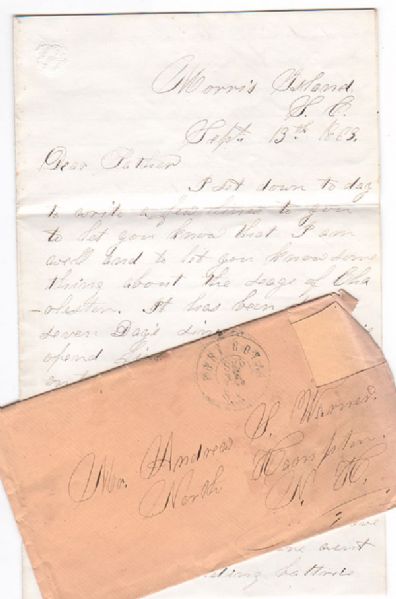 Morris Island
S. C.
Sept. 13th 1863.
Dear Father
I set down to day
to write a few lines to you
to let you know that I am
well and to let you know some
thing about the seage of Cha
-rleston. It has been
seven Days since
opend
on
PORT ROYAL
Mr. Andrew S. Warner.
North Hampton.
N. H.
we
went
batteris